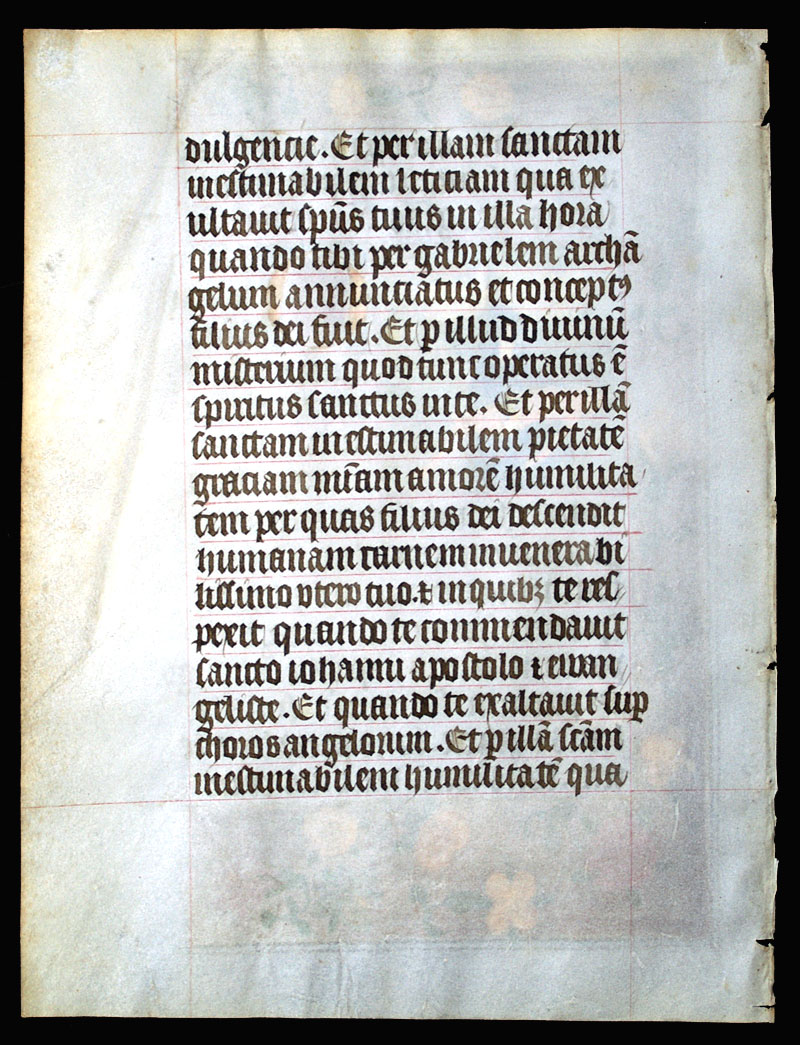 dulgencie. Et per illam sanctam
inestimabilem leticiam qua ex
ultauit sp̄us tuus in illa hora
quando tibi per gabrielem archā
gelum annunciatus et conceptꝰ
filius dei fuit. Et ꝑ illud diuinū
misterium quod tunc operatus ē
spiritus sanctus in te. Et per illā
sanctam inestimabilem pietatē
graciam mīam amorē humilita
tem per quas filius dei descendit
humanam carnem in uenerabi
lissimo vtero tuo. ⁊ in quibꝫ te res
pexit quando te commendauit
sancto iohanni apostolo ⁊ ewan
geliste. Et quando te exaltauit suꝑ
choros angelorum. Et ꝑ illā scām
inestimabilem humilitatē qua